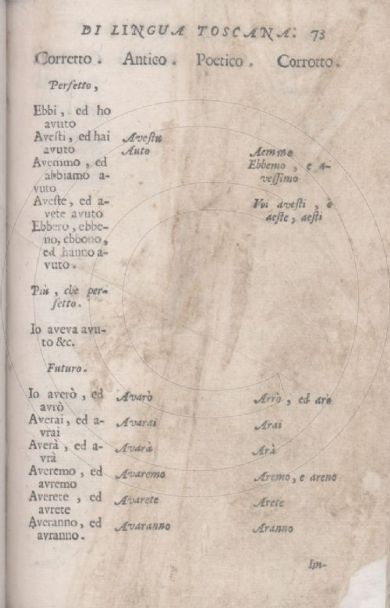 DI LINGUA TOSCANA. 73
Corretto. Antico. Poetico. Corrotto.
Perfetto,
Ebbi, ed ho
avuto
Avesti, ed hai Avestu
avuto Auto Aemmo
Avemmo, ed Ebbemo, e a-
abbiamo a- vessimo
vuto
Aveste, ed a- Voi avesti, e
vete avuto aeste, aesti
Ebbero, ebbe-
no, ebbono,
ed hanno a-
vuto.
Più, che per-
fetto.
Io aveva avu-
to &c.
Futuro.
Io averò, ed Avarò Arrò, ed aro
avrò
Averai, ed a- Avarai Arai
vrai
Averà, ed a- Avarà Arà
vrà
Averemo, ed Avaremo Aremo, e areno
avremo
Averete, ed Avarete Arete
avrete
Averanno, ed Avaranno Aranno
avranno.
Im-